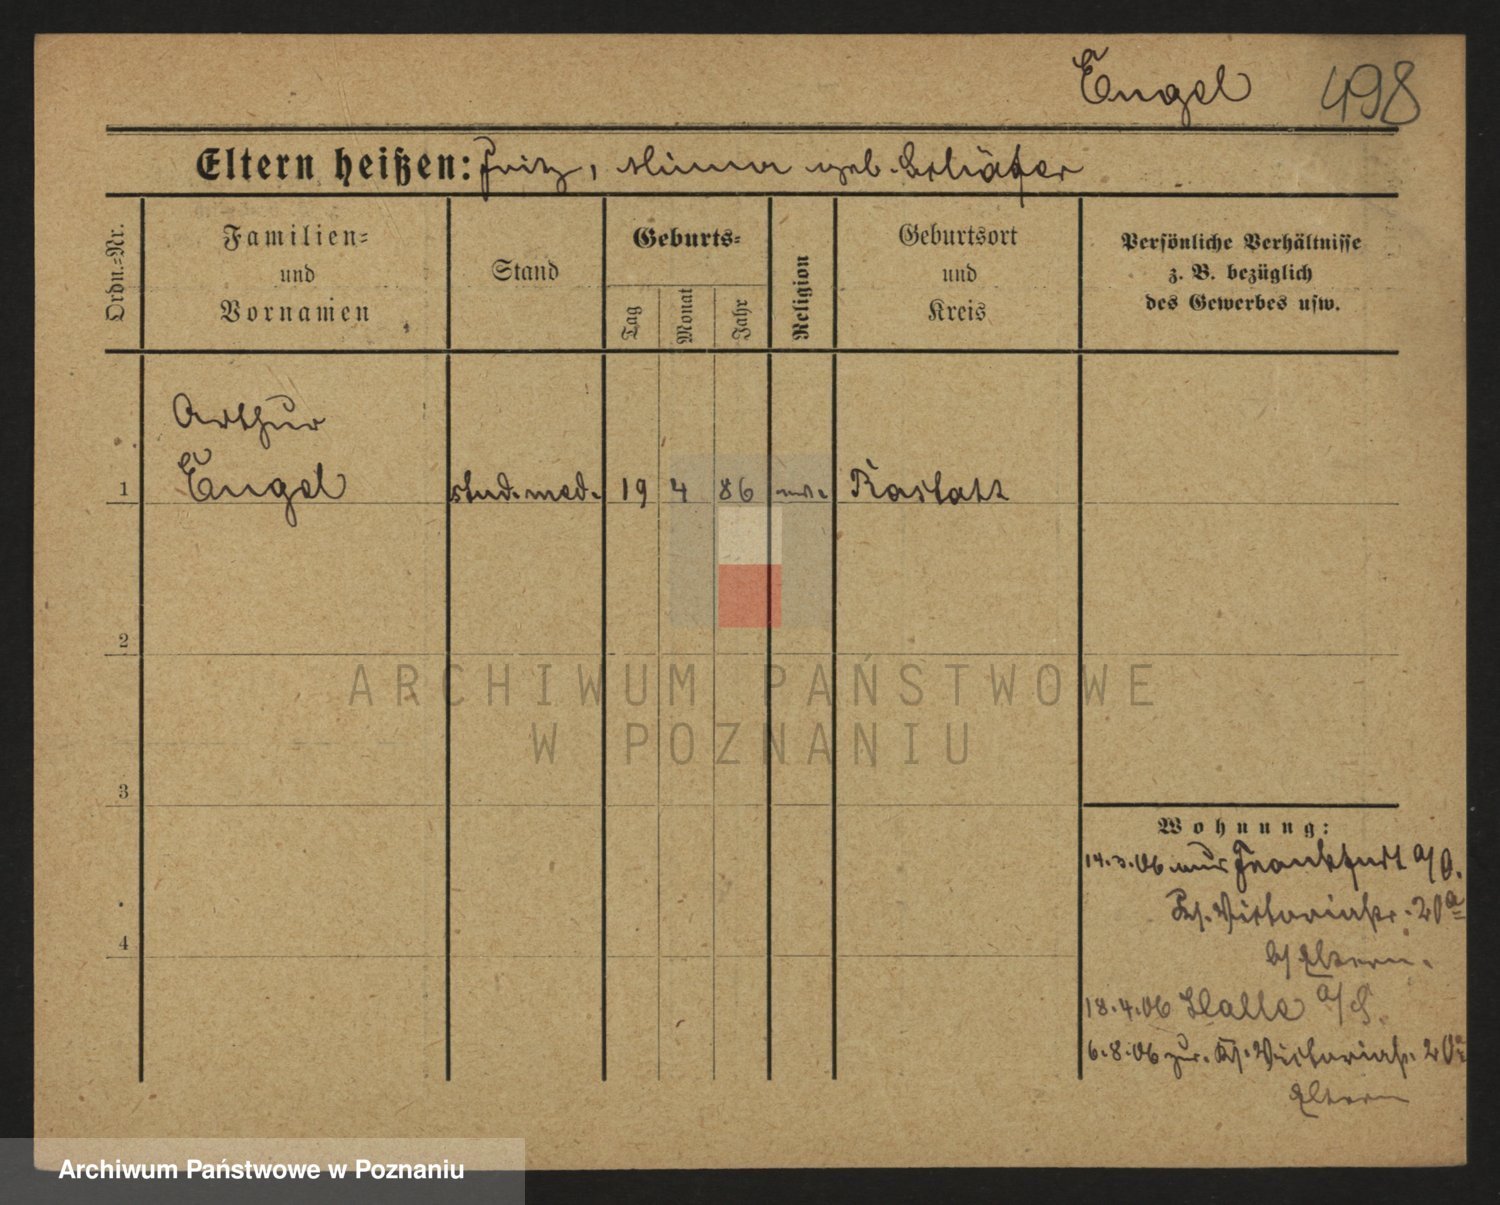 Engel 498
Eltern heißen: Fritz, Minna geb. Schäfer
Ordn.=Nr.
Familien=
und
Vornamen
Stand
Geburts=
Tag
Monat
Jahr
Religion
Geburtsort
und
Kreis
Persönliche Verhältnisse
z. B. bezüglich
des Gewerbes usw.
Arthur
1 Engel stud. med. 19 4 86 Rastatt
2
3
4
ARCHIWUM PAŃSTWOWE
W POZNANIU
Wohnung:
14.3.06 aus Frankfurt a/O.
Victoriastr. 20a
b/ Eltern.
18.4.06 Halle a/S.
6.8.06 zur. Victoriastr. 20
Eltern
Archiwum Państwowe w Poznaniu